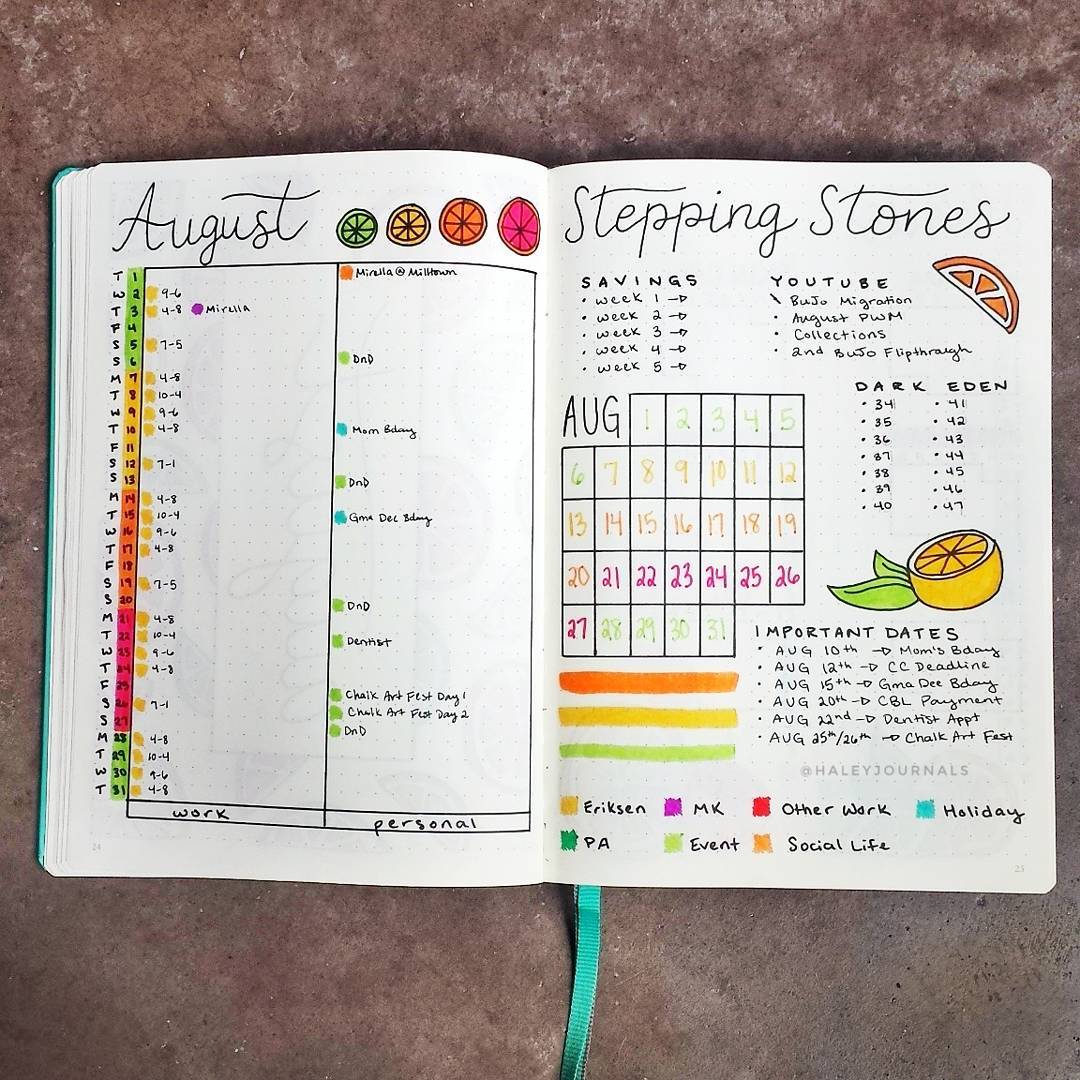 August
T 1 Mirella @ Milltown
W 2 9-6
T 3 4-8 Mirella
F 4
S 5 7-5
S 6 DnD
M 7 4-8
T 8 10-4
W 9 9-6
T 10 4-8 Mom Bday
F 11
S 12 7-1
S 13 DnD
M 14 4-8
T 15 10-4 Gma Dee Bday
W 16 9-6
T 17 4-8
F 18
S 19 7-5
S 20 DnD
M 21 4-8
T 22 10-4 Dentist
W 23 9-6
T 24 4-8
F 25 Chalk Art Fest Day 1
S 26 7-1 Chalk Art Fest Day 2
S 27 DnD
M 28 4-8
T 29 10-4
W 30 9-6
T 31 4-8
work personal
24
Stepping Stones
SAVINGS
• week 1 →
• week 2 →
• week 3 →
• week 4 →
• week 5 →
YOUTUBE
\ BuJo Migration
• August PWM
• Collections
• 2nd BuJo Flipthraugh
DARK EDEN
• 34 • 41
• 35 • 42
• 36 • 43
• 37 • 44
• 38 • 45
• 39 • 46
• 40 • 47
AUG 1 2 3 4 5
6 7 8 9 10 11 12
13 14 15 16 17 18 19
20 21 22 23 24 25 26
27 28 29 30 31
IMPORTANT DATES
• AUG 10th → Mom's Bday
• AUG 12th → CC Deadline
• AUG 15th → Gma Dee Bday
• AUG 20th → CBL Payment
• AUG 22nd → Dentist Appt
• AUG 25th/26th → Chalk Art Fest
@HALEYJOURNALS
Eriksen MK Other Work Holiday
PA Event Social Life
25